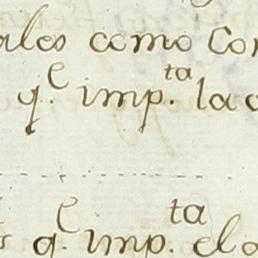 ales como Con
q.e imp.ta la c
q.e imp.ta el a